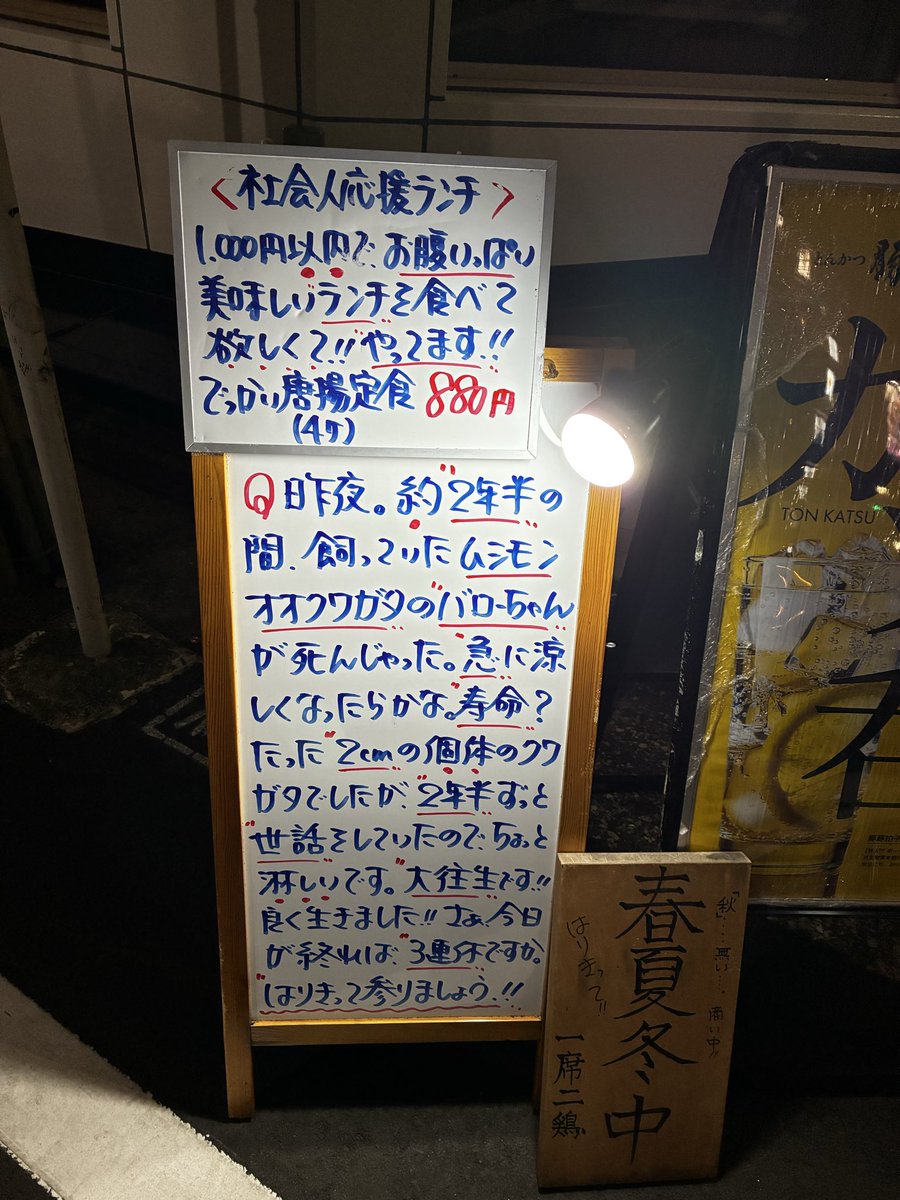 〈社会人応援ランチ〉
1,000円以内で、お腹いっぱい
美味しいランチを食べて
欲しくて!!やってます!!
でっかい唐揚定食 880円
(4ヶ)
Q 昨夜。約"2年半の
間、飼っていたムシモン
オオクワガタの"バローちゃん
が死んじゃった。急に涼
しくなったらかな。"寿命?
たった"2cmの個体のクワ
ガタでしたが、2年半ずっと
"世話をしていたので、ちょっと
淋しいです。"大往生です!!
良く生きました!!さぁ、今日
が終れば、3連休ですか。
"はりきって参りましょう!!
とんかつ
TON KATSU
「秋」…無い… 商い中!!
春夏冬中
はりきって!!
一席二鶏